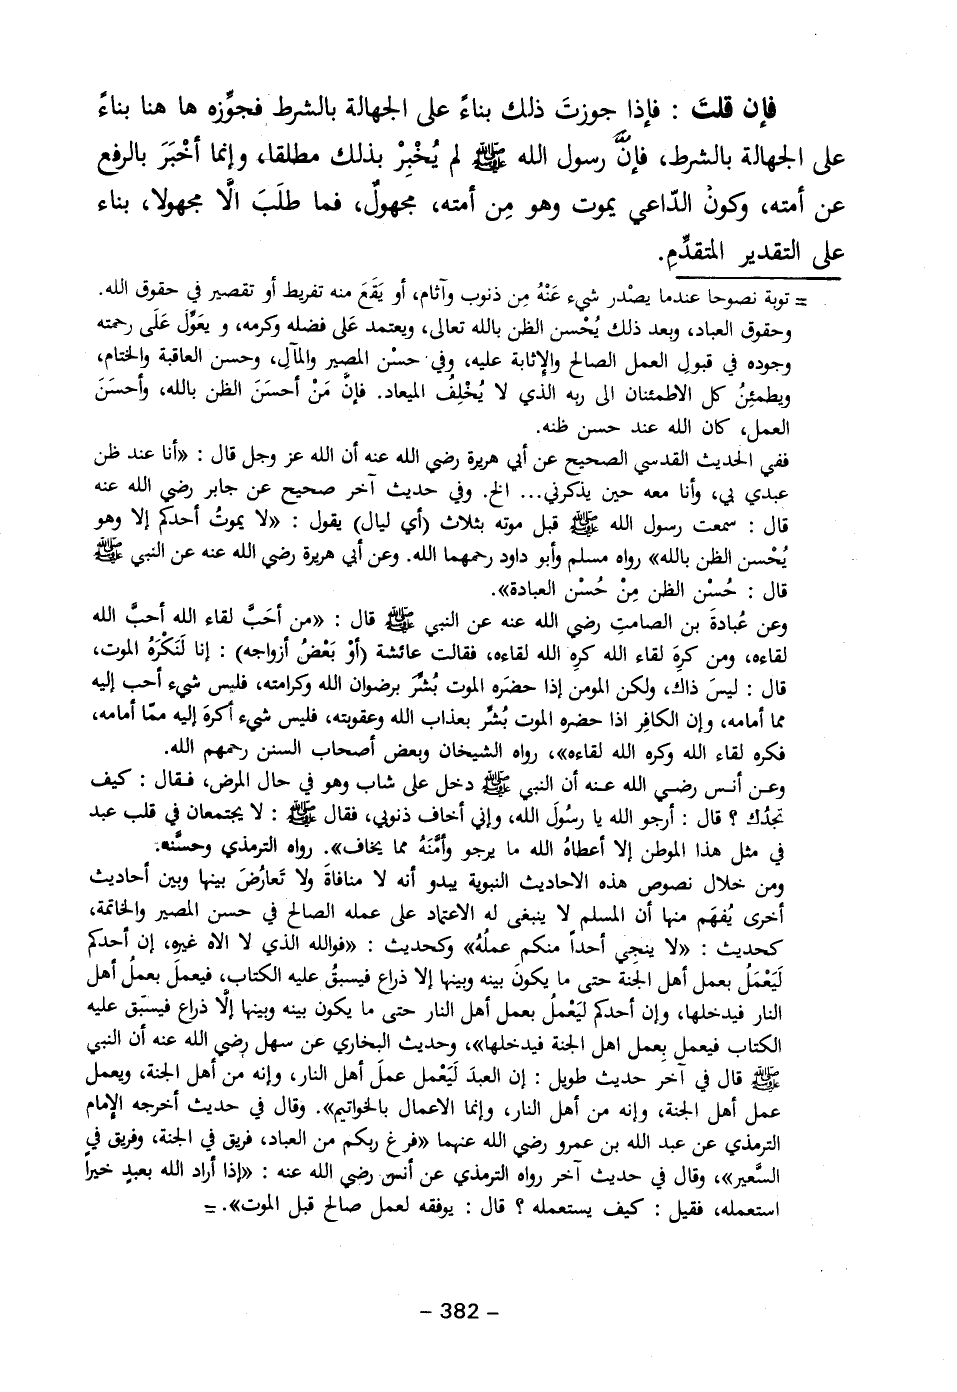 فإن قلتَ : فإذا جوزتَ ذلك بناءً على الجهالة بالشرط فجوِّزه ها هنا بناءً
على الجهالة بالشرط، فإنَّ رسول الله ﷺ لم يُخْبِرْ بذلك مطلقا، وإنما أخْبَرَ بالرفع
عن أمته، وكونُ الدّاعي يموت وهو مِن أمته، مجهولٌ، فما طلَبَ الَّا مجهولا، بناء
على التقدير المتقدِّم.
= توبة نصوحا عندما يصْدر شيء عَنْهُ مِن ذنوب وآثام، أو يَقَعَ منه تفريط أو تقصير في حقوق الله.
وحقوق العباد، وبعد ذلك يُحْسن الظن بالله تعالى، ويعتمد عَلى فضله وكرمه، و يعَوِّل عَلَى رحمته
وجوده في قبولِ العمل الصالح والإثابة عليه، وفي حسْن المصير والمآلِ، وحسن العاقبة والختام،
ويطمئِنُ كل الاطمئنان الى ربه الذي لا يُخْلِفُ الميعاد. فإنَّ مَنْ أحسَنَ الظن بالله، وأحسَنَ
العمل، كان الله عند حسن ظنه.
ففي الحديث القدسي الصحيح عن أبي هريرة رضي الله عنه أن الله عز وجل قال : «أنا عند ظن
عبدي بي، وأنا معه حين يذكرني... الخ. وفي حديث آخر صحيح عن جابر رضي الله عنه
قال : سمعت رسول الله ﷺ قبل موته بثلاث (أي ليال) يقول : «لا يموتُ أحدكم إلا وهو
يُحْسن الظن بالله» رواه مسلم وأبو داود رحمهما الله. وعن أبي هريرة رضي الله عنه عن النبي ﷺ
قال : حُسْن الظن مِنْ حُسْن العبادة».
وعن عُبادةَ بن الصامتِ رضي الله عنه عن النبي ﷺ قال : «من أحَبَّ لقاء الله أحبَّ الله
لقاءه، ومن كرِهَ لقاء الله كرِه الله لقاءه، فقالت عائشة (أوْ بَعْضُ أزواجه) : إنا لَنَكْرَهُ الموت،
قال : ليسَ ذاك، ولكن المومن إذا حضرَه الموت بُشِّرَ برضوان الله وكرامته، فليس شيء أحب إليه
مما أمامه، وإن الكافِر اذا حضره الموت بُشِّر بعذاب الله وعقوبته، فليس شيء أكرهَ إليه ممّا أمامه،
فكره لقاء الله وكره الله لقاءه»، رواه الشيخان وبعض أصحاب السنن رحمهم الله.
وعـن أنـس رضـي الله عـنه أن النبي ﷺ دخل على شاب وهو في حال المرض، فـقال : كيف
تجدُك ؟ قال : أرجو الله يا رسُولَ الله، وإني أخاف ذنوبي، فقال ﷺ : لا يجتمعان في قلب عبد
في مثل هذا الموطن إلا أعطاهُ الله ما يرجو وأمَّنَهُ مما يخاف». رواه الترمذي وحسَّنه.
ومن خلال نصوص هذه الاحاديث النبوية يبدو أنه لا منافاةَ ولا تَعارُضَ بينها وبين أحاديث
أخرى يُفهَم منها أن المسلم لا ينبغي له الاعتماد على عمله الصالح في حسن المصير والخاتمة،
كحديث : «لا ينجِي أحداً منكم عملُهُ» وكحديث : «فوالله الذي لا الاه غيره، إن أحدكم
لَيَعْمَلُ بعمل أهل الجنة حتى ما يكونَ بينه وبينها إلا ذراع فيسبقُ عليه الكتاب، فيعملَ بعملُ أهل
النار فيدخلها، وإن أحدكم لَيَعْمُلُ بعمل أهل النار حتى ما يكون بينه وبينها إلَّا ذراع فيسبّق عليه
الكتاب فيعمل بِعمل اهل الجنة فيدخلها»، وحديث البخاري عن سهل رضي الله عنه أن النبي
ﷺ قال في آخر حديث طويل : إن العبدَ لَيَعْمل عملَ أهل النار، وإنه من أهل الجنة، ويعمل
عمل أهل الجنة، وإنه من أهل النار، وإنما الاعمال بالخواتيم». وقال في حديث أخرجه الإمام
الترمذي عن عبد الله بن عمرو رضي الله عنهما «فرغ ربكم من العباد، فريق في الجنة، وفريق في
السَّعير»، وقال في حديث آخر رواه الترمذي عن أنس رضي الله عنه : «إذا أراد الله بعبدٍ خيراً
استعمله، فقيل : كيف يستعمله ؟ قال : يوفقه لعمل صالح قبل الموت». =
– 382 –